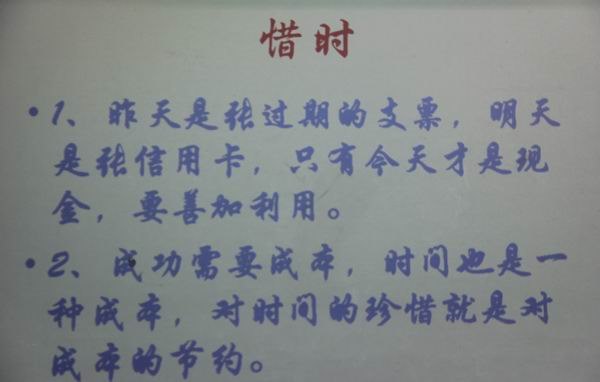 惜时
•1、昨天是张过期的支票，明天
是张信用卡，只有今天才是现
金，要善加利用。
•2、成功需要成本，时间也是一
种成本，对时间的珍惜就是对
成本的节约。